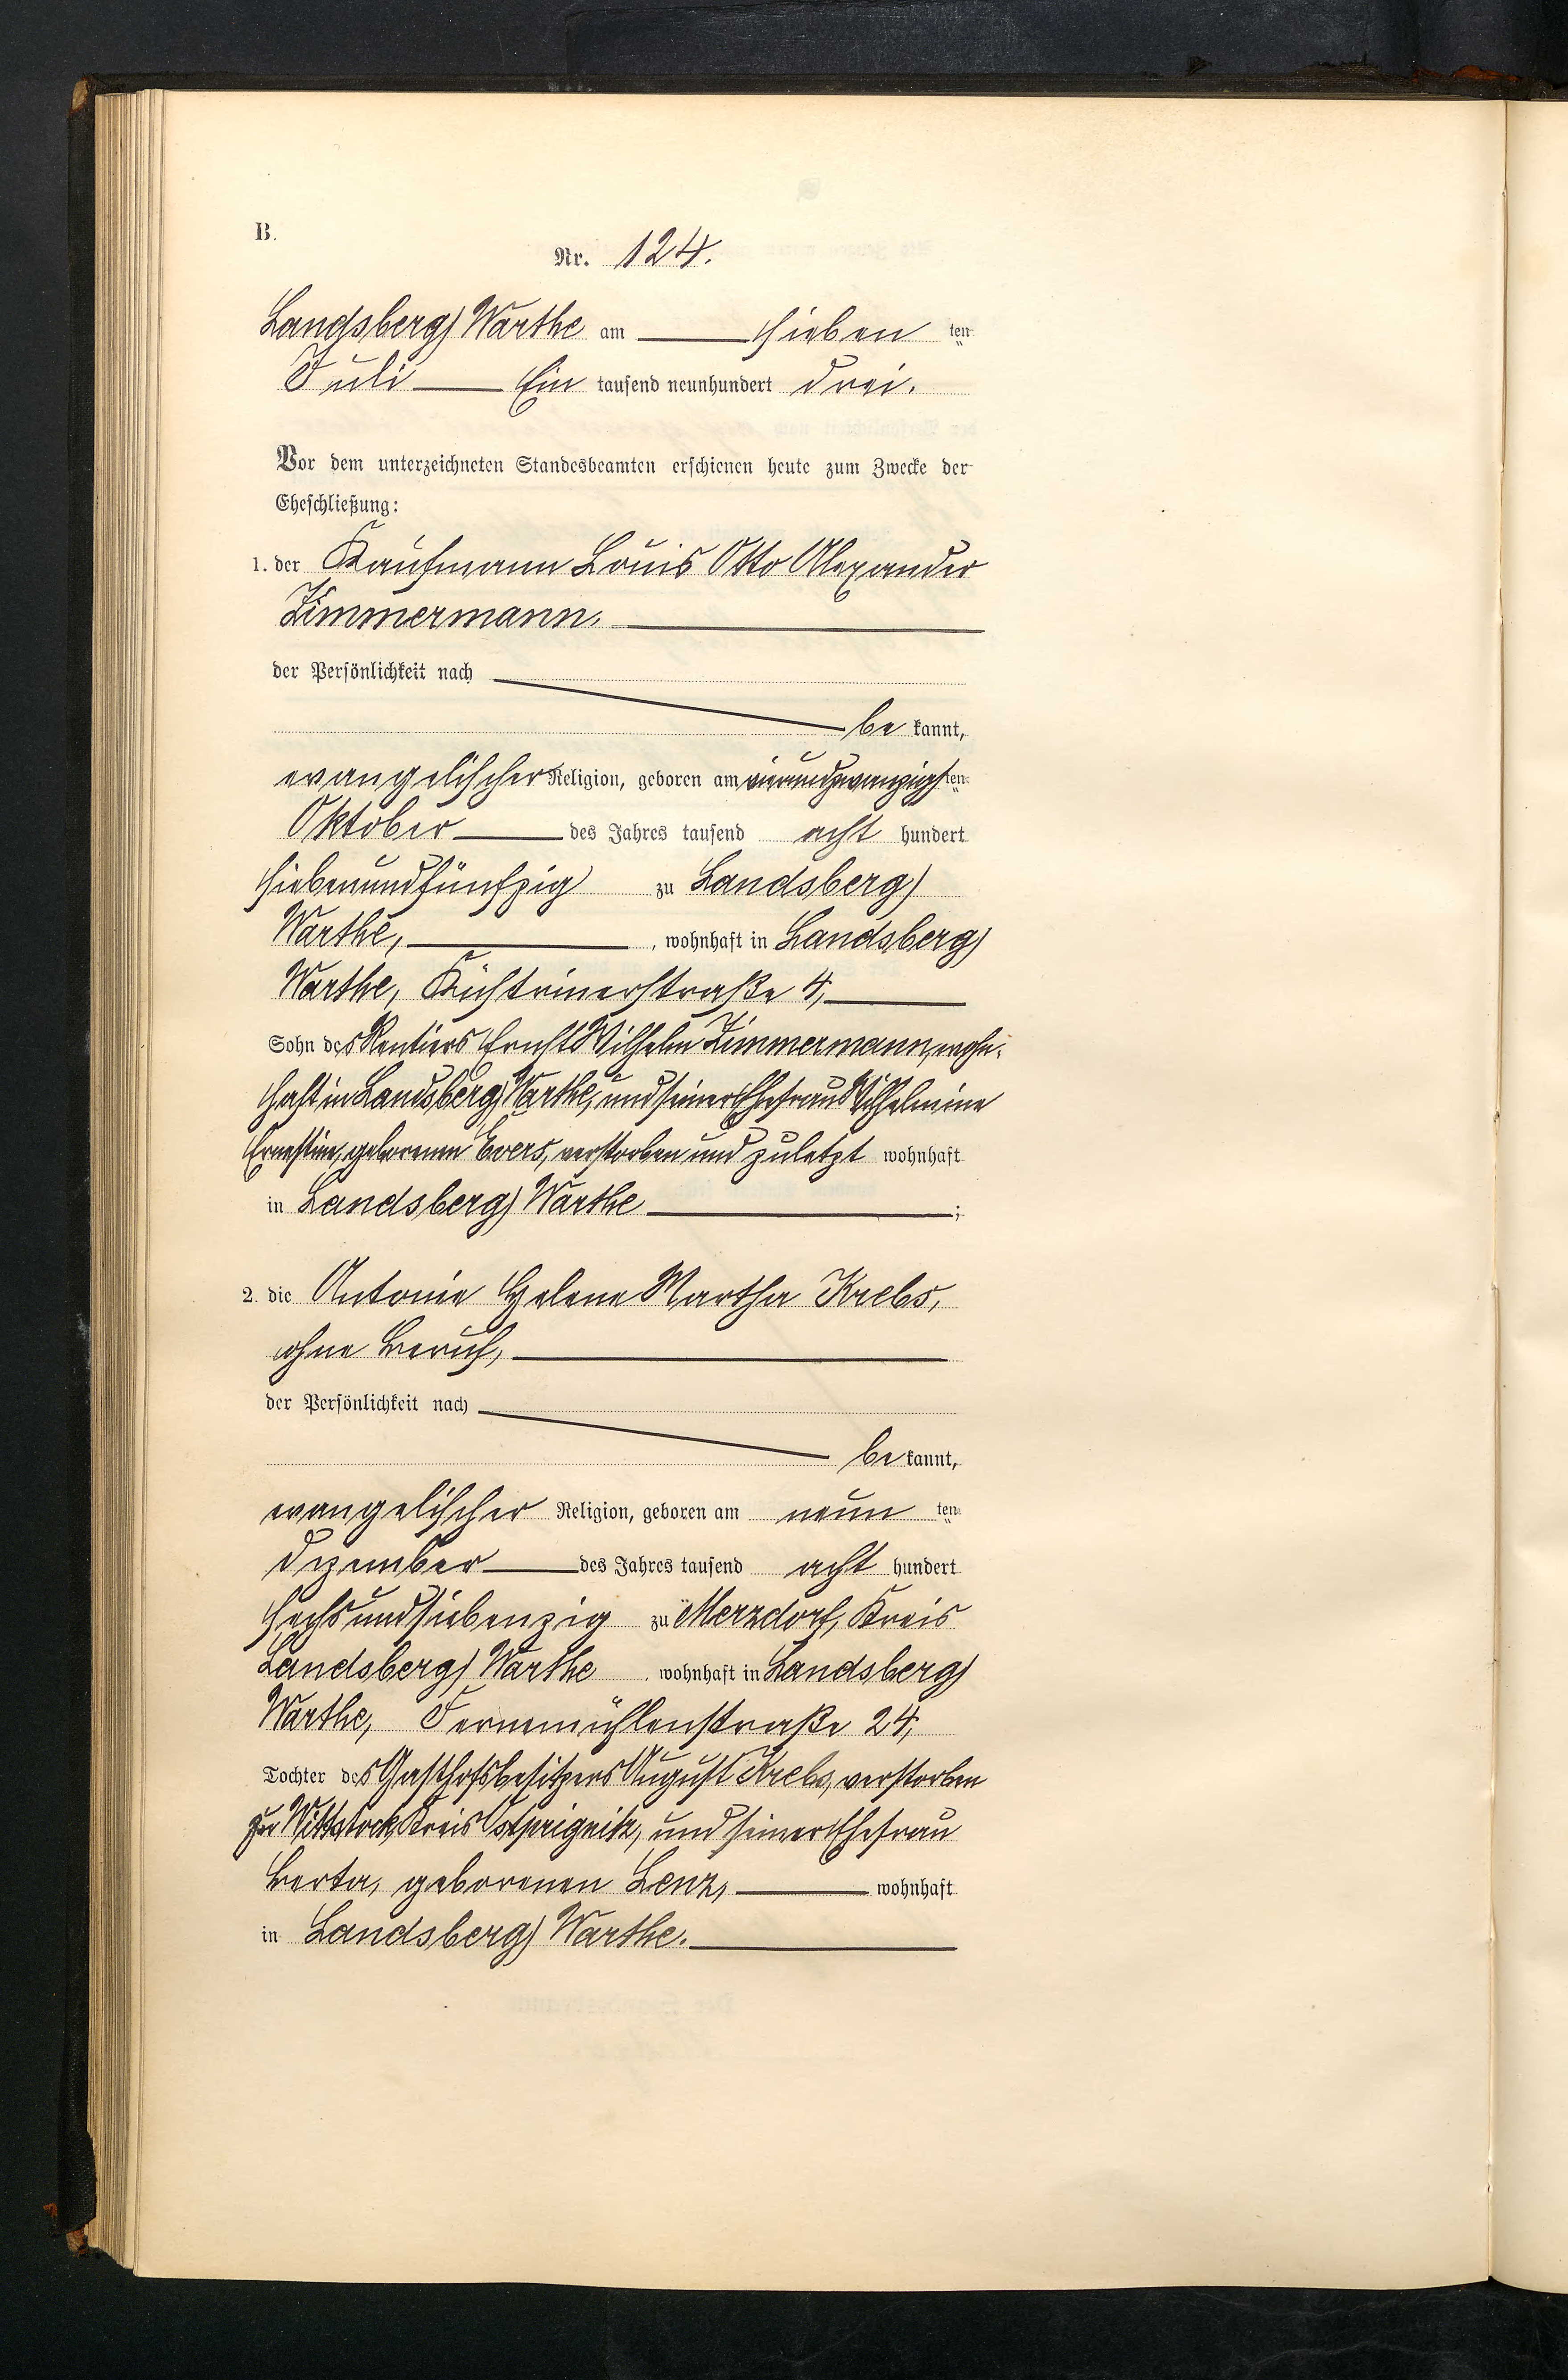 B.
Nr. 124.
Landsberg) Warthe am sieben ten
Juli Ein tausend neunhundert drei.
Vor dem unterzeichneten Standesbeamten erschienen heute zum Zwecke der
Eheschließung:
1. der Kaufmann Louis Otto Alexander
Zimmermann,
der Persönlichkeit nach
be kannt,
evangelischer Religion, geboren am vierundzwanzigsten
Oktober des Jahres tausend acht hundert
siebenundfünfzig zu Landsberg)
Warthe, , wohnhaft in Landsberg)
Warthe, Küstrinerstraße 4,
Sohn des Rentiers Ernst Wilhelm Zimmermann, wohn-
haft in Landsberg) Warthe, und seiner Ehefrau Wilhelmine
Ernestine, geborenen Evers, verstorben und zuletzt wohnhaft
in Landsberg) Warthe ;
2. die Antonie Helene Martha Krebs,
ohne Beruf,
der Persönlichkeit nach
be kannt,
evangelischer Religion, geboren am neun ten
Dezember des Jahres tausend acht hundert
sechsundsiebenzig zu Merzdorf, Kreis
Landsberg) Warthe , wohnhaft in Landsberg)
Warthe, Fernemühlenstraße 24,
Tochter des Gasthofsbesitzers August Krebs, verstorben
zu Wittstock, Kreis Ostprignitz, und seiner Ehefrau
Berta, geborenen Lenz, wohnhaft
in Landsberg) Warthe.